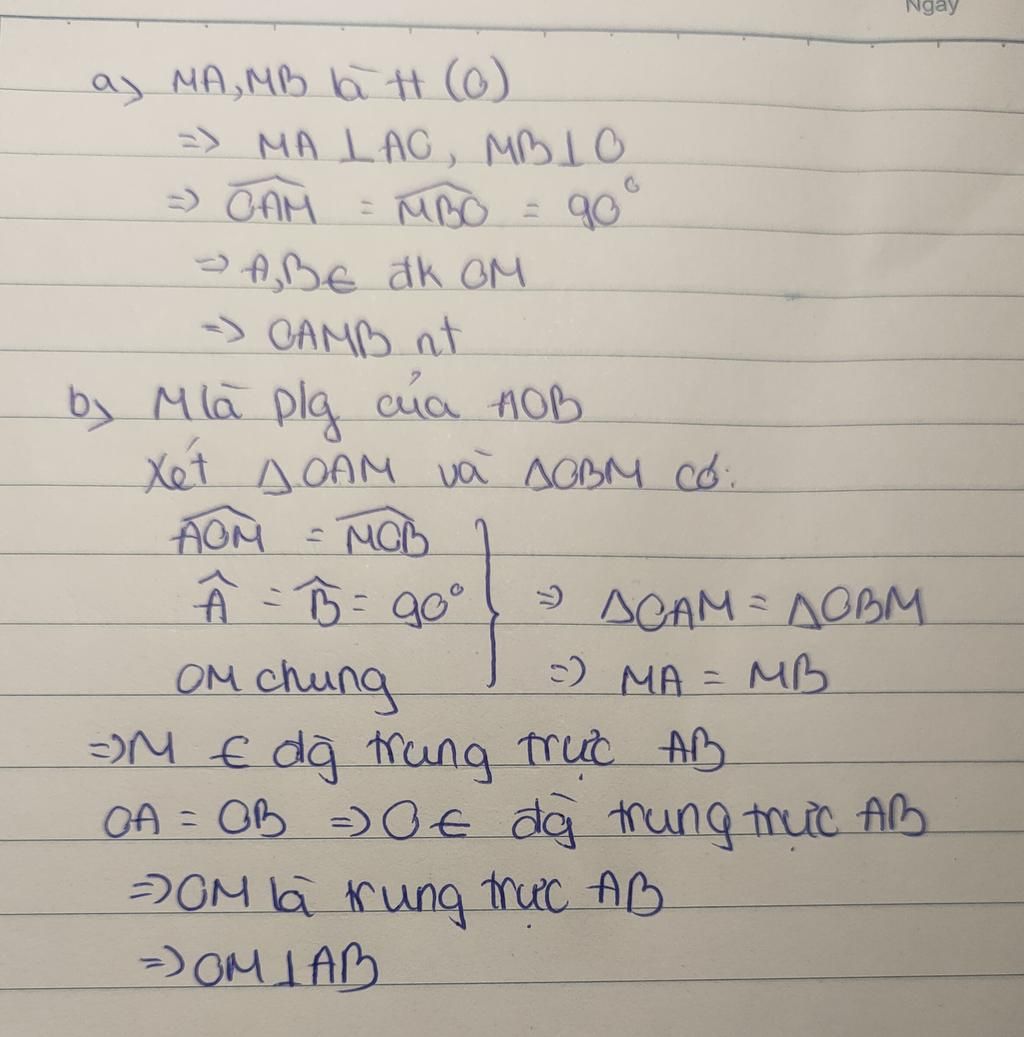 Ngày
a) MA, MB là tt (O)
=> MA ⊥ AO, MB ⊥ O
=> \widehat{OAM} = \widehat{MBO} = 90°
=> A, B ∈ đk OM
=> OAMB nt
b) M là p/g của AOB
Xét ΔOAM và ΔOBM có:
\widehat{AOM} = \widehat{MOB}
\widehat{A} = \widehat{B} = 90° => ΔOAM = ΔOBM
OM chung => MA = MB
=> M ∈ đg trung trực AB
OA = OB => O ∈ đg trung trực AB
=> OM là trung trực AB
=> OM ⊥ AB